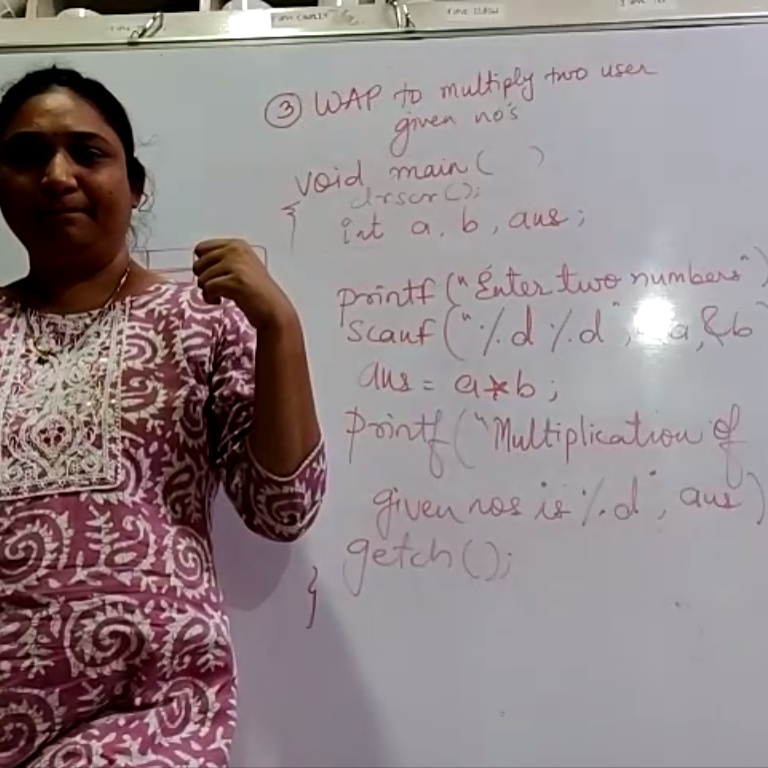 ③ WAP to multiply two user
given no's
void main( )
clrscr();
{ int a, b, ans;
printf("Enter two numbers")
scanf("%d %d", a, &b
ans = a*b;
printf("Multiplication of
given nos is %d", ans)
getch();
}